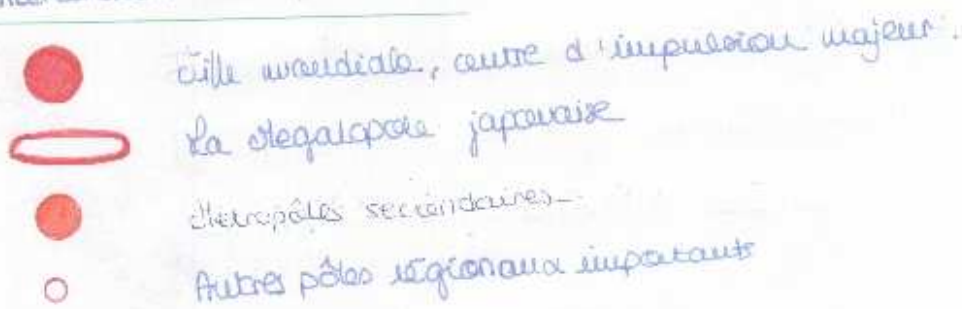 Ville mondiale, centre d'impulsion majeur.
La Mégalopole japonaise
Métropoles secondaires
Autres pôles régionaux importants